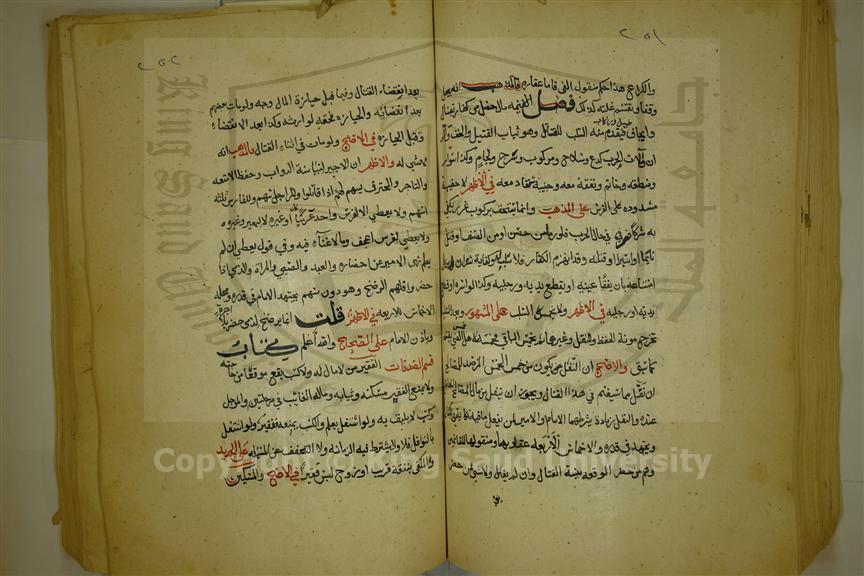 ٢٥١
فصل الغنيمة مال حصل من كفار بقتال
وايجاف فيقدم منه السلب للقاتل وهو ثياب القتيل والخف والران
وآلات الحرب كدرع وسلاح ومركوب وسرج ولجام وكذا سوار
ومنطقه وخاتم ونفقة معه وجنيبة تقاد معه في الاظهر لا حقيبة
مشدودة على الفرس على المذهب وانما يستحق بركوب غرر يكفي
به شر كافر في حال الحرب فلو رمى من حصن او من الصف او قتل
نايما او اسيرا او قتله وقد انهزم الكفار فلا سلب وكفاية شره ان يزيل
امتناعه بان يفقأ عينيه او يقطع يديه ورجليه وكذا لو اسره او قطع
يديه او رجليه في الاظهر ولا يخمس السلب على المشهور وبعد السلب
تخرج مونة الحفظ والنقل وغيرهما ثم يخمس الباقي
كما سبق والاصح ان النفل يكون من خمس الخمس المرصد للمصالح
ان نفل مما سيغنم في هذا القتال ويجوز ان ينفل من مال المصالح الحاصل
عنده والنفل زيادة يشترطها الامام او الامير لمن يفعل ما فيه
ويجتهد في قدره والاخماس الاربعة عقارها ومنقولها للغانمين
وهم من حضر الوقعة بنية القتال وان لم يقاتل ولا شي لمن حضر
٢٥٢
بعد انقضاء القتال وفيما قبل حيازة المال وجه ولو مات بعضهم
بعد انقضائه والحيازة فحقه لوارثه وكذا بعد الانقضاء
وقبل الحيازة في الاصح ولو مات في اثناء القتال فالمذهب انه
لا شي له والاظهر ان الاجير لسياسة الدواب وحفظ الامتعة
والتاجر والمحترف يسهم لهم اذا قاتلوا وللراجل سهم وللفارس ثلاثة
اسهم ولا يعطى الا لفرس واحد عربيا كان او غيره لا لبعير وغيره
ولا يعطى لفرس اعجف وما لا غناء فيه وفي قول يعطى ان لم
يعلم نهي الامير عن احضاره والعبد والصبي والمراة والذمي اذا
حضروا فلهم الرضخ وهو دون سهم يجتهد الامام في قدره ومحله
الاخماس الاربعة في الاظهر قلت انما يرضخ لذمي حضر بلا اجرة
وباذن الامام على الصحيح والله اعلم كتاب
قسم الصدقات الفقير من لا مال له ولا كسب يقع موقعا من حاجته
ولا يمنع الفقر مسكنه وثيابه وماله الغائب في مرحلتين والموجل
وكسب لا يليق به ولو اشتغل بعلم والكسب يمنعه ففقير ولو اشتغل
بالنوافل فلا ولا يشترط فيه الزمانة ولا التعفف عن المسئلة على الجديد
والمكفي بنفقة قريب او زوج ليس فقيرا في الاصح والمسكين
Copyright © King Saud University
King Saud University
جامعة الملك